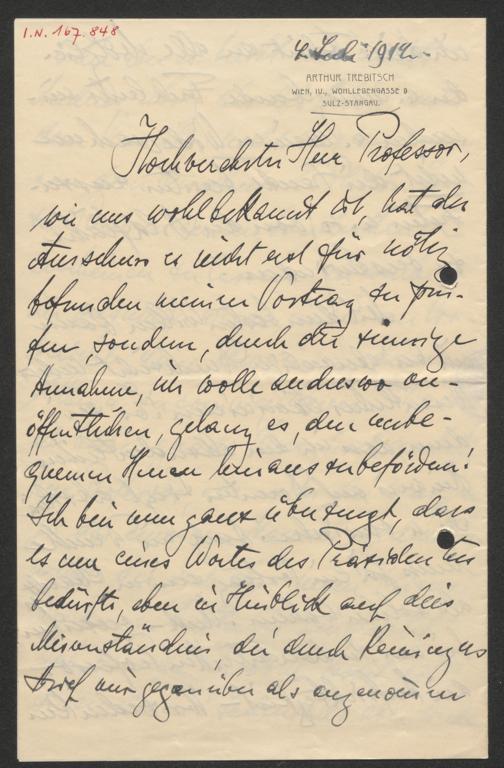 I.N. 167.848
4. Juli 1912.
ARTHUR TREBITSCH
WIEN, IV., WOHLLEBENGASSE 9
SULZ-STANGAU.
Hochverehrter Herr Professor,
wie uns wohlbekannt ist, hat der
Ausschuss es nicht erst für nötig
befunden meinen Vortrag zu prü-
fen, sondern, durch die
Annahme, ich wolle anderswo ver-
öffentlichen, gelang es, den unbe-
quemen Herrn hinauszubefördern!
Ich bin nun ganz überzeugt, dass
es nur eines Wortes des Präsidenten
bedürfte, eben in Hinblick auf dies
Missverständnis, die durch Reiningers
Brief mir gegenüber als angenommen